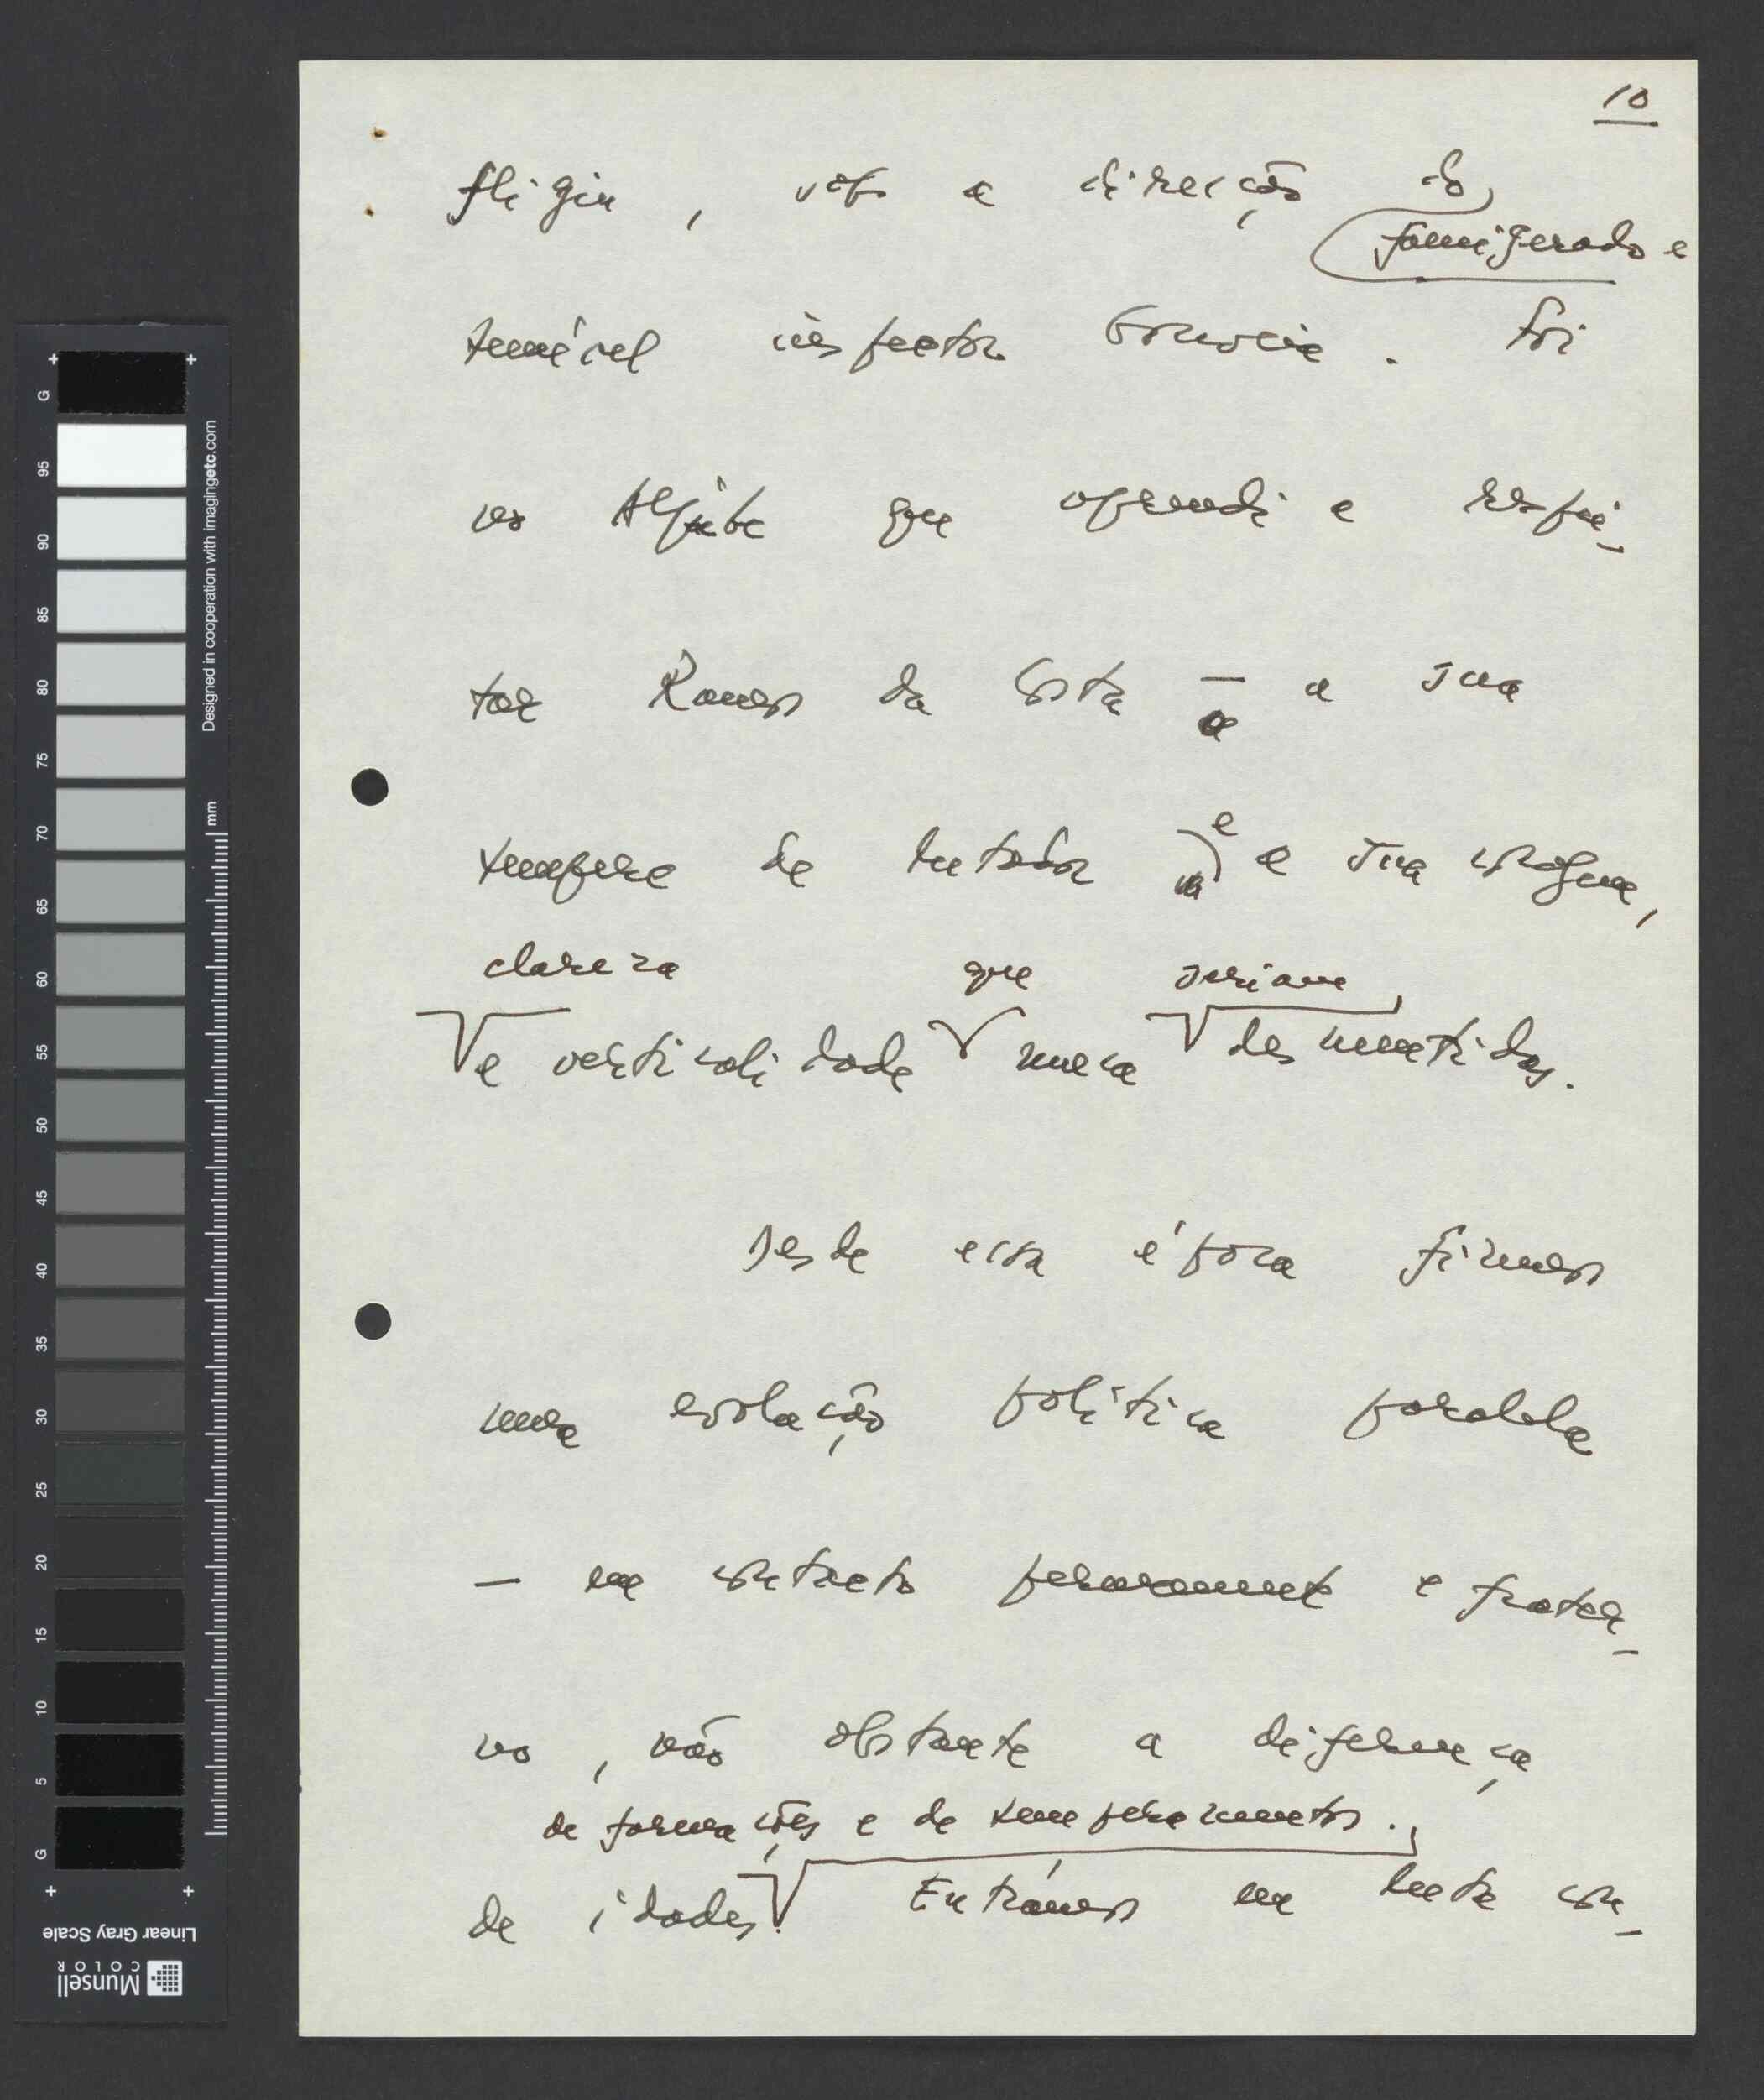 10
fligiu, sob a direcção do
famigerado e
temível inspector Gouveia. Foi
no Aljube que aprendi a respei-
tar Ramos da Costa — a sua
têmpera de lutador, e a sua coragem,
clareza que seriam
e verticalidade nunca desmentidas.
Desde essa época fizemos
uma evolução política paralela
— em contacto permanente e frater-
no, não obstante a diferença
de formações e de temperamentos.
de idades. Entrámos na luta con-
G
95
90
85
80
75
70
65
60
55
50
45
40
35
30
25
20
15
10
5
G
mm
Designed in cooperation with imagingetc.com
Linear Gray Scale
Munsell
COLOR